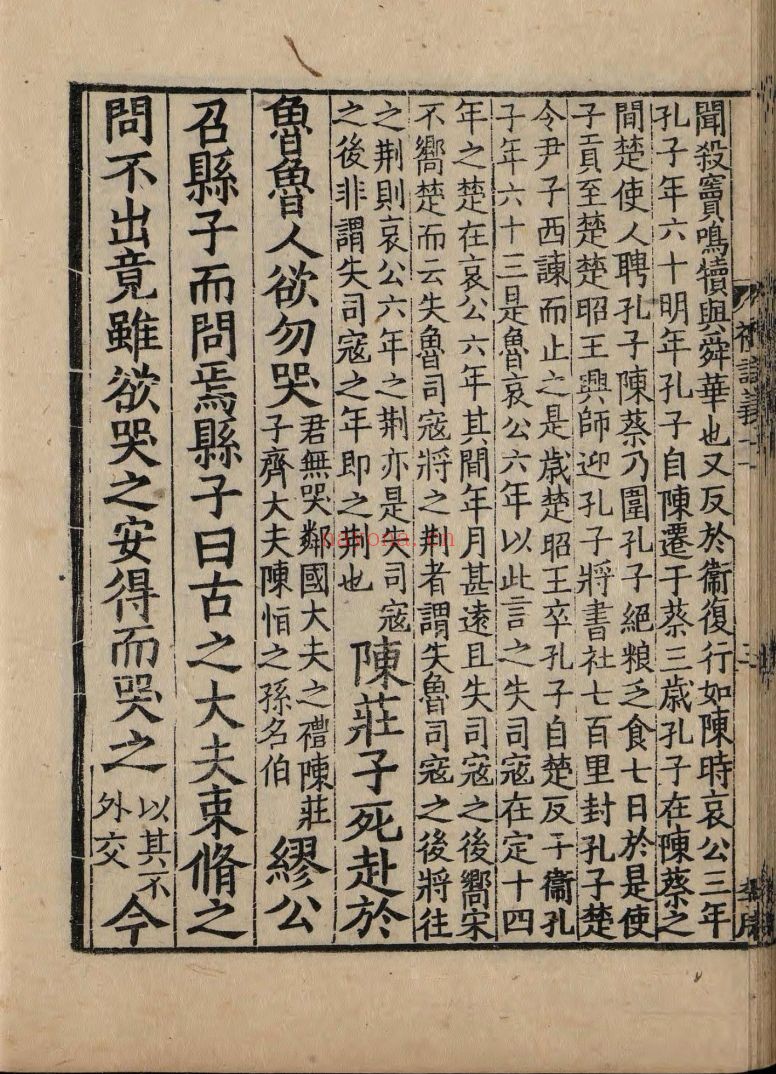 聞殺竇鳴犢與舜華也又反於衞復行如陳時哀公三年
孔子年六十明年孔子自陳遷于蔡三歲孔子在陳蔡之
間楚使人聘孔子陳蔡乃圍孔子絕粮乏食七日於是使
子貢至楚楚昭王興師迎孔子將書社七百里封孔子楚
令尹子西諫而止之是歲楚昭王卒孔子自楚反于衞孔
子年六十三是魯哀公六年以此言之失司寇在定十四
年之楚在哀公六年其間年月甚遠且失司寇之後嚮宋
不嚮楚而云失魯司寇將之荆者謂失魯司寇之後將往
之荆則哀公六年之荆亦是失司寇
之後非謂失司寇之年即之荆也
陳莊子死赴於
魯魯人欲勿哭
君無哭鄰國大夫之禮陳莊
子齊大夫陳恒之孫名伯
繆公
召縣子而問焉縣子曰古之大夫束脩之
問不出竟雖欲哭之安得而哭之
以其不
外交
今
三